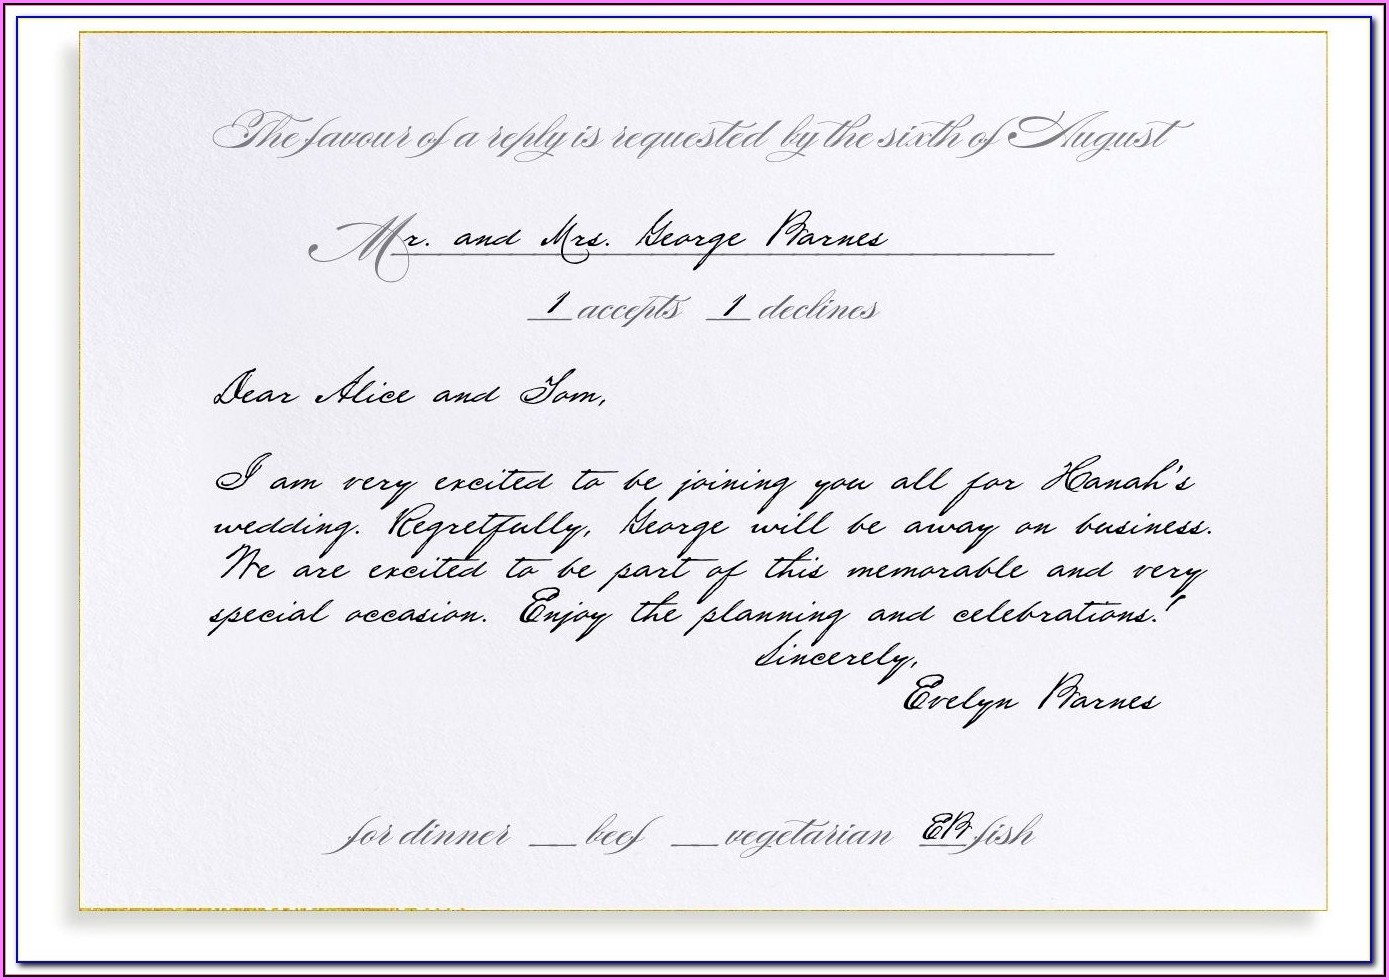 The favour of a reply is requested by the sixth of August
Mr. and Mrs. George Barnes
1 accepts 1 declines
Dear Alice and Tom,
I am very excited to be joining you all for Hanah's
wedding. Regretfully, George will be away on business.
We are excited to be part of this memorable and very
special occasion. Enjoy the planning and celebrations!
Sincerely,
Evelyn Barnes
for dinner __ beef __ vegetarian EB fish